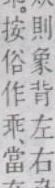 則象背左右
按俗作乖當